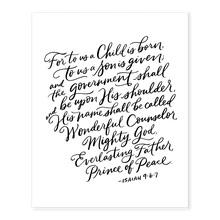 For to us a Child is born,
to us a Son is given,
and the government shall
be upon His shoulder,
& His name shall be called
Wonderful Counselor
Mighty God,
Everlasting Father
Prince of Peace
-ISAIAH 9:6-7